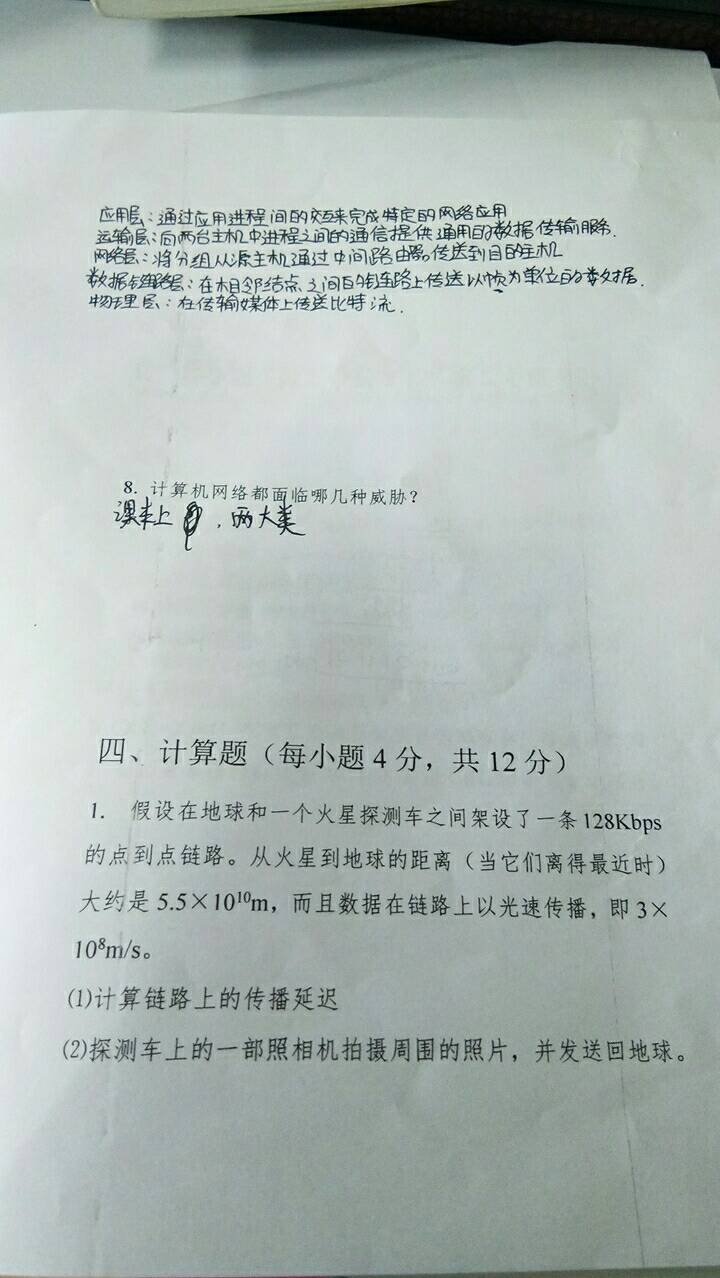 应用层：通过应用进程间的交互来完成特定的网络应用
运输层：向两台主机中进程之间的通信提供通用的数据传输服务.
网络层：将分组从源主机通过中间路由器传送到目的主机
数据链路层：在相邻结点之间的链路上传送以帧为单位的数据.
物理层：在传输媒体上传送比特流.
8. 计算机网络都面临哪几种威胁？
课本上，两大类
四、计算题（每小题 4 分，共 12 分）
1. 假设在地球和一个火星探测车之间架设了一条 128Kbps
的点到点链路。从火星到地球的距离（当它们离得最近时）
大约是 5.5×10¹⁰m，而且数据在链路上以光速传播，即 3×
10⁸m/s。
⑴计算链路上的传播延迟
⑵探测车上的一部照相机拍摄周围的照片，并发送回地球。